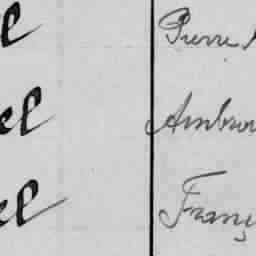 el Pierre
el Ambroi
el Franç